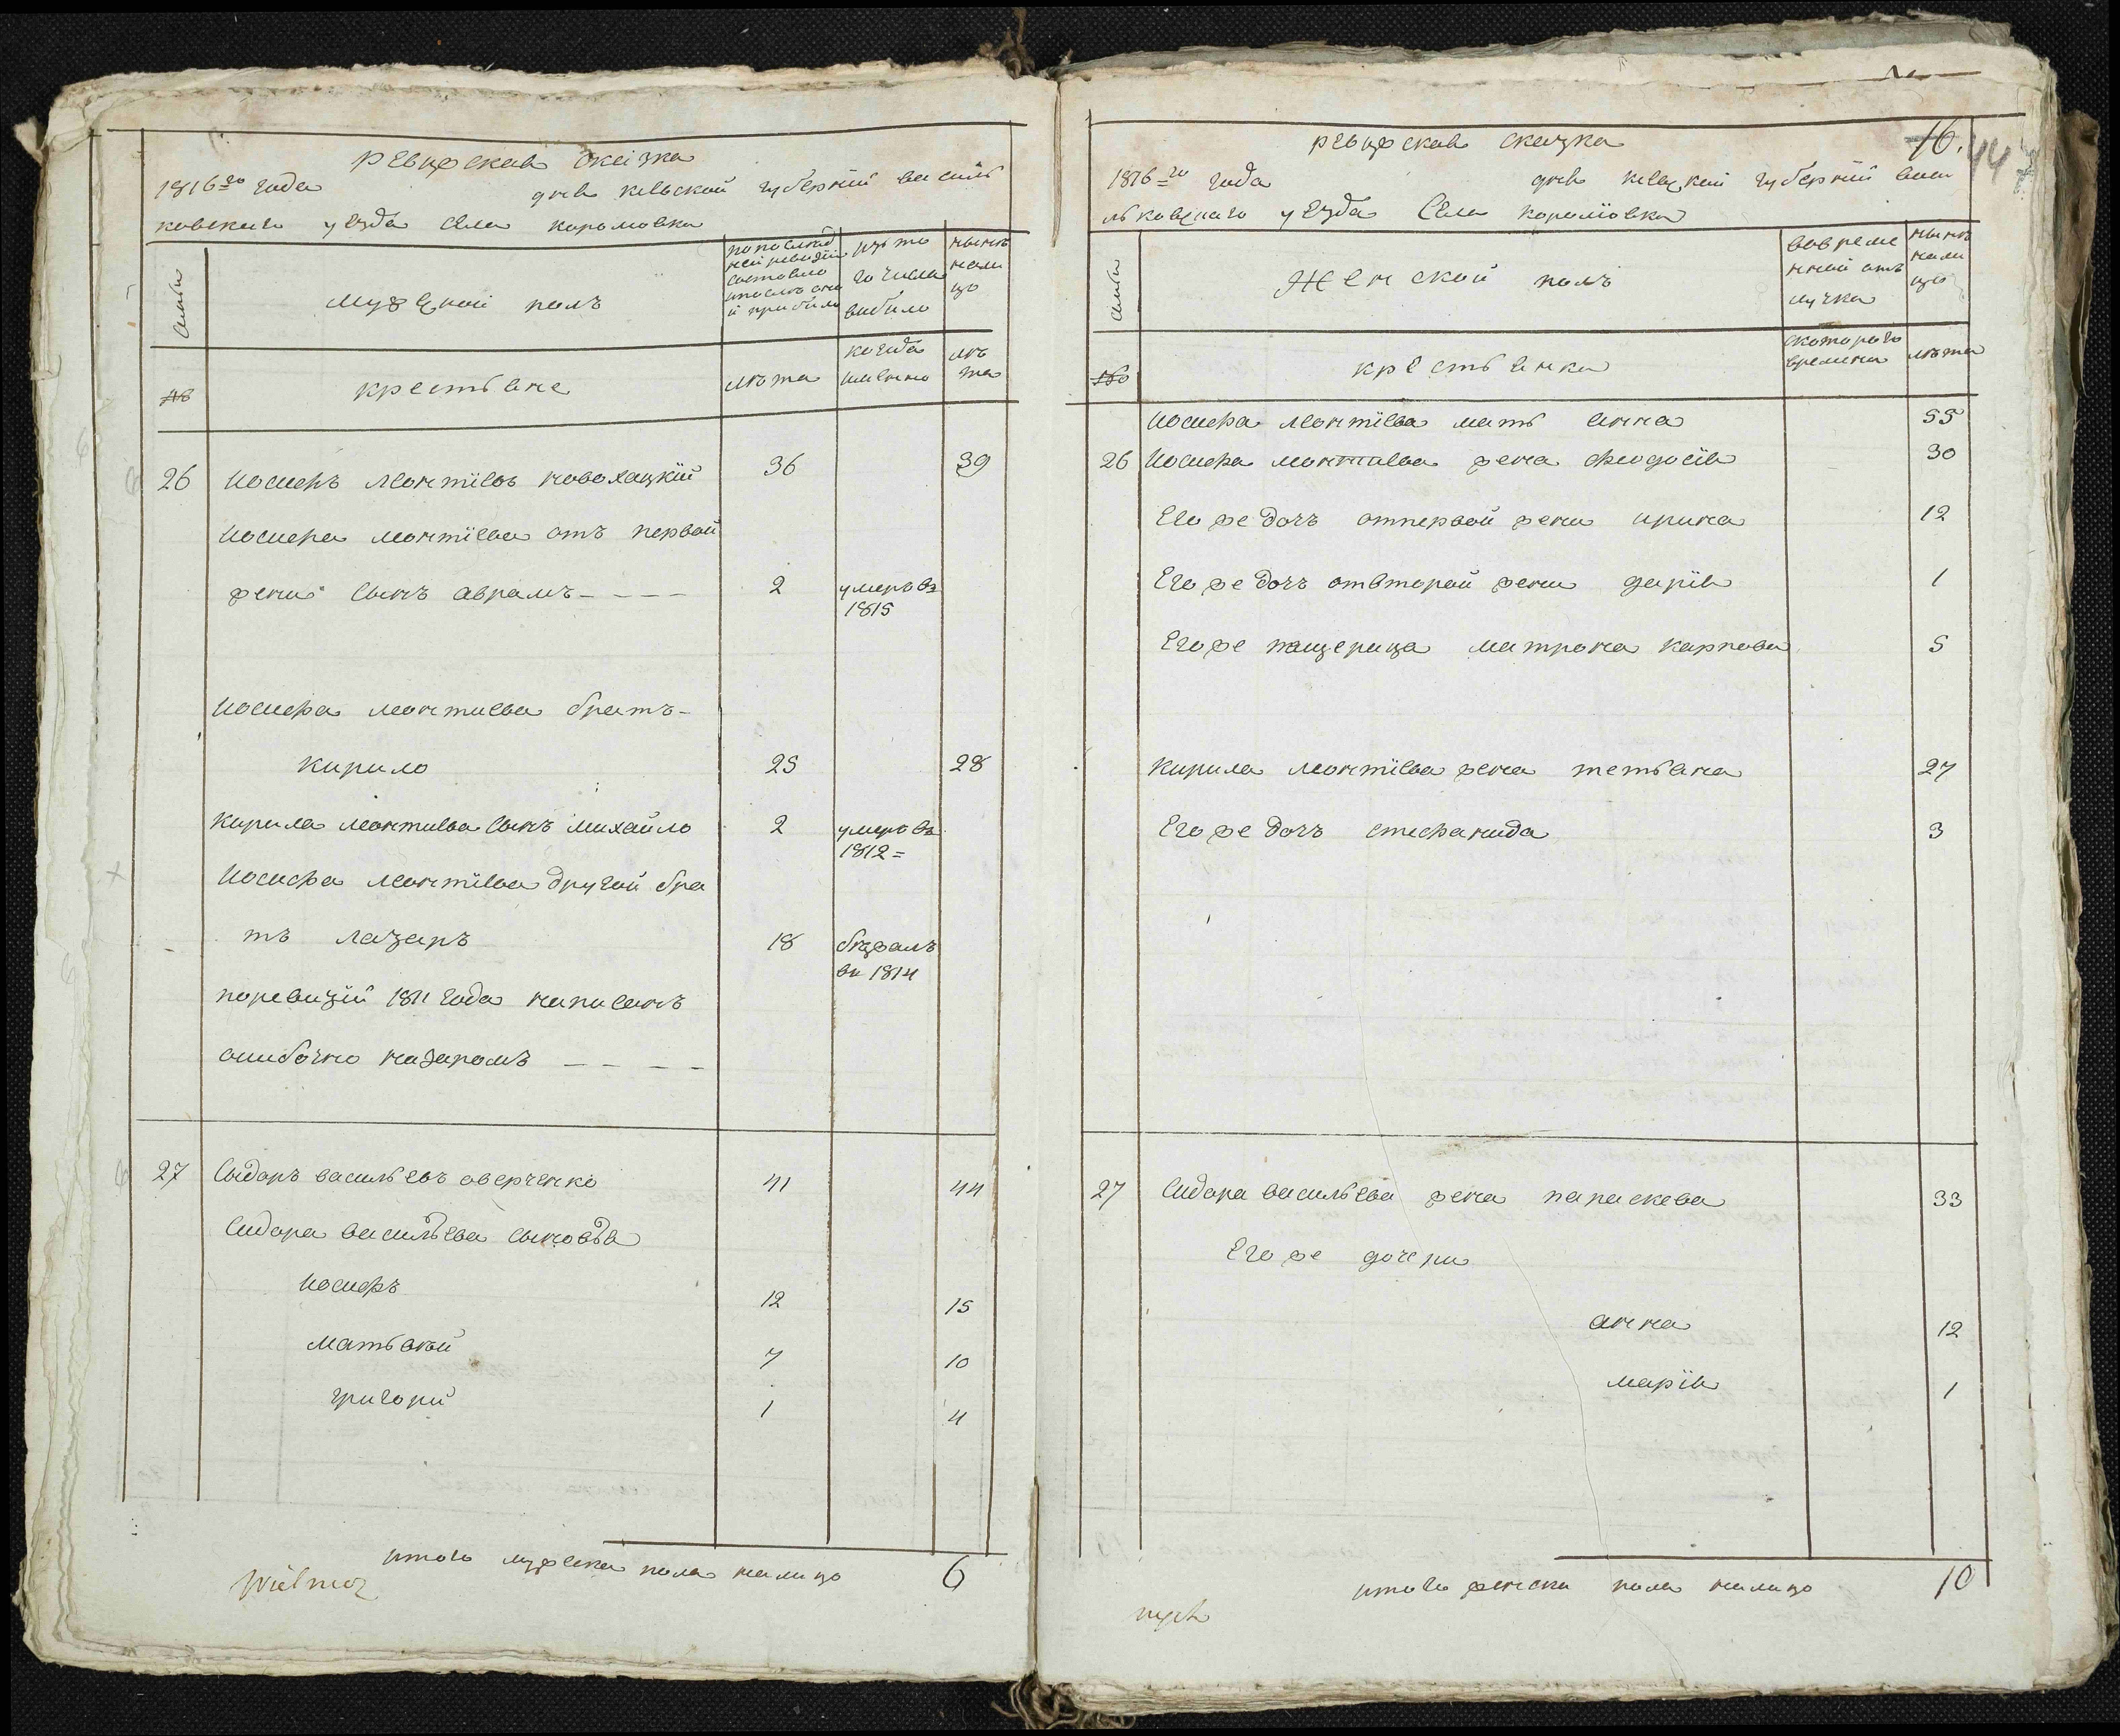 ревизская сказка
1816=го года дня киевской губернии василь
ковскаго уезда села королiовка
семьи
мужеской полъ
попослед
ней ревизiи
состояло
и после он
и прибыло
изъ то
го числа
выбыло
ныне
нали
цо
№
крестьяне
лѣта
когда
имянно
лѣ
та
26 иосифъ леонтiевъ новохацкiй 36 39
иосифа леонтiева отъ первой
жены сынъ аврамъ - - - - 2 умеръ въ
1815
иосифа леонтиева братъ -
кирило 25 28
кирила леонтиева сынъ михайло 2 умеръ въ
1812 =
иосифа леонтiева другой бра
тъ лазаръ 18 бежалъ
въ 1814
поревизiи 1811 года написанъ
ошибочно назаромъ - - - -
27 сыдоръ васильевъ оверченко 41 44
сидора васильева сыновья
иосифъ 12 15
матвѣй 7 10
григорiй 1 4
итого мужеска пола налицо 6
16.
44
ревизская сказка
1816=го года дня киевской губернiи васи
льковскаго уезда села королiовка
семьи
женской полъ
вовреме
нной отъ
лучки
ныне
нали
цо
№
крестьянки
скотораго
времени
лѣта
иосифа леонтiева мать анна 55
26 иосифа леонтиева жена феодосiя 30
его же дочъ отпервой жены ирина 12
его же дочъ отвторой жены дарiя 1
его же пащерица матрона карпова 5
кирила леонтiева жена тетьяна 27
его же дочъ стефанида 3
27 сидора васильева жена параскева 33
его же дочери
анна 12
марiя 1
итого женска пола налицо 10